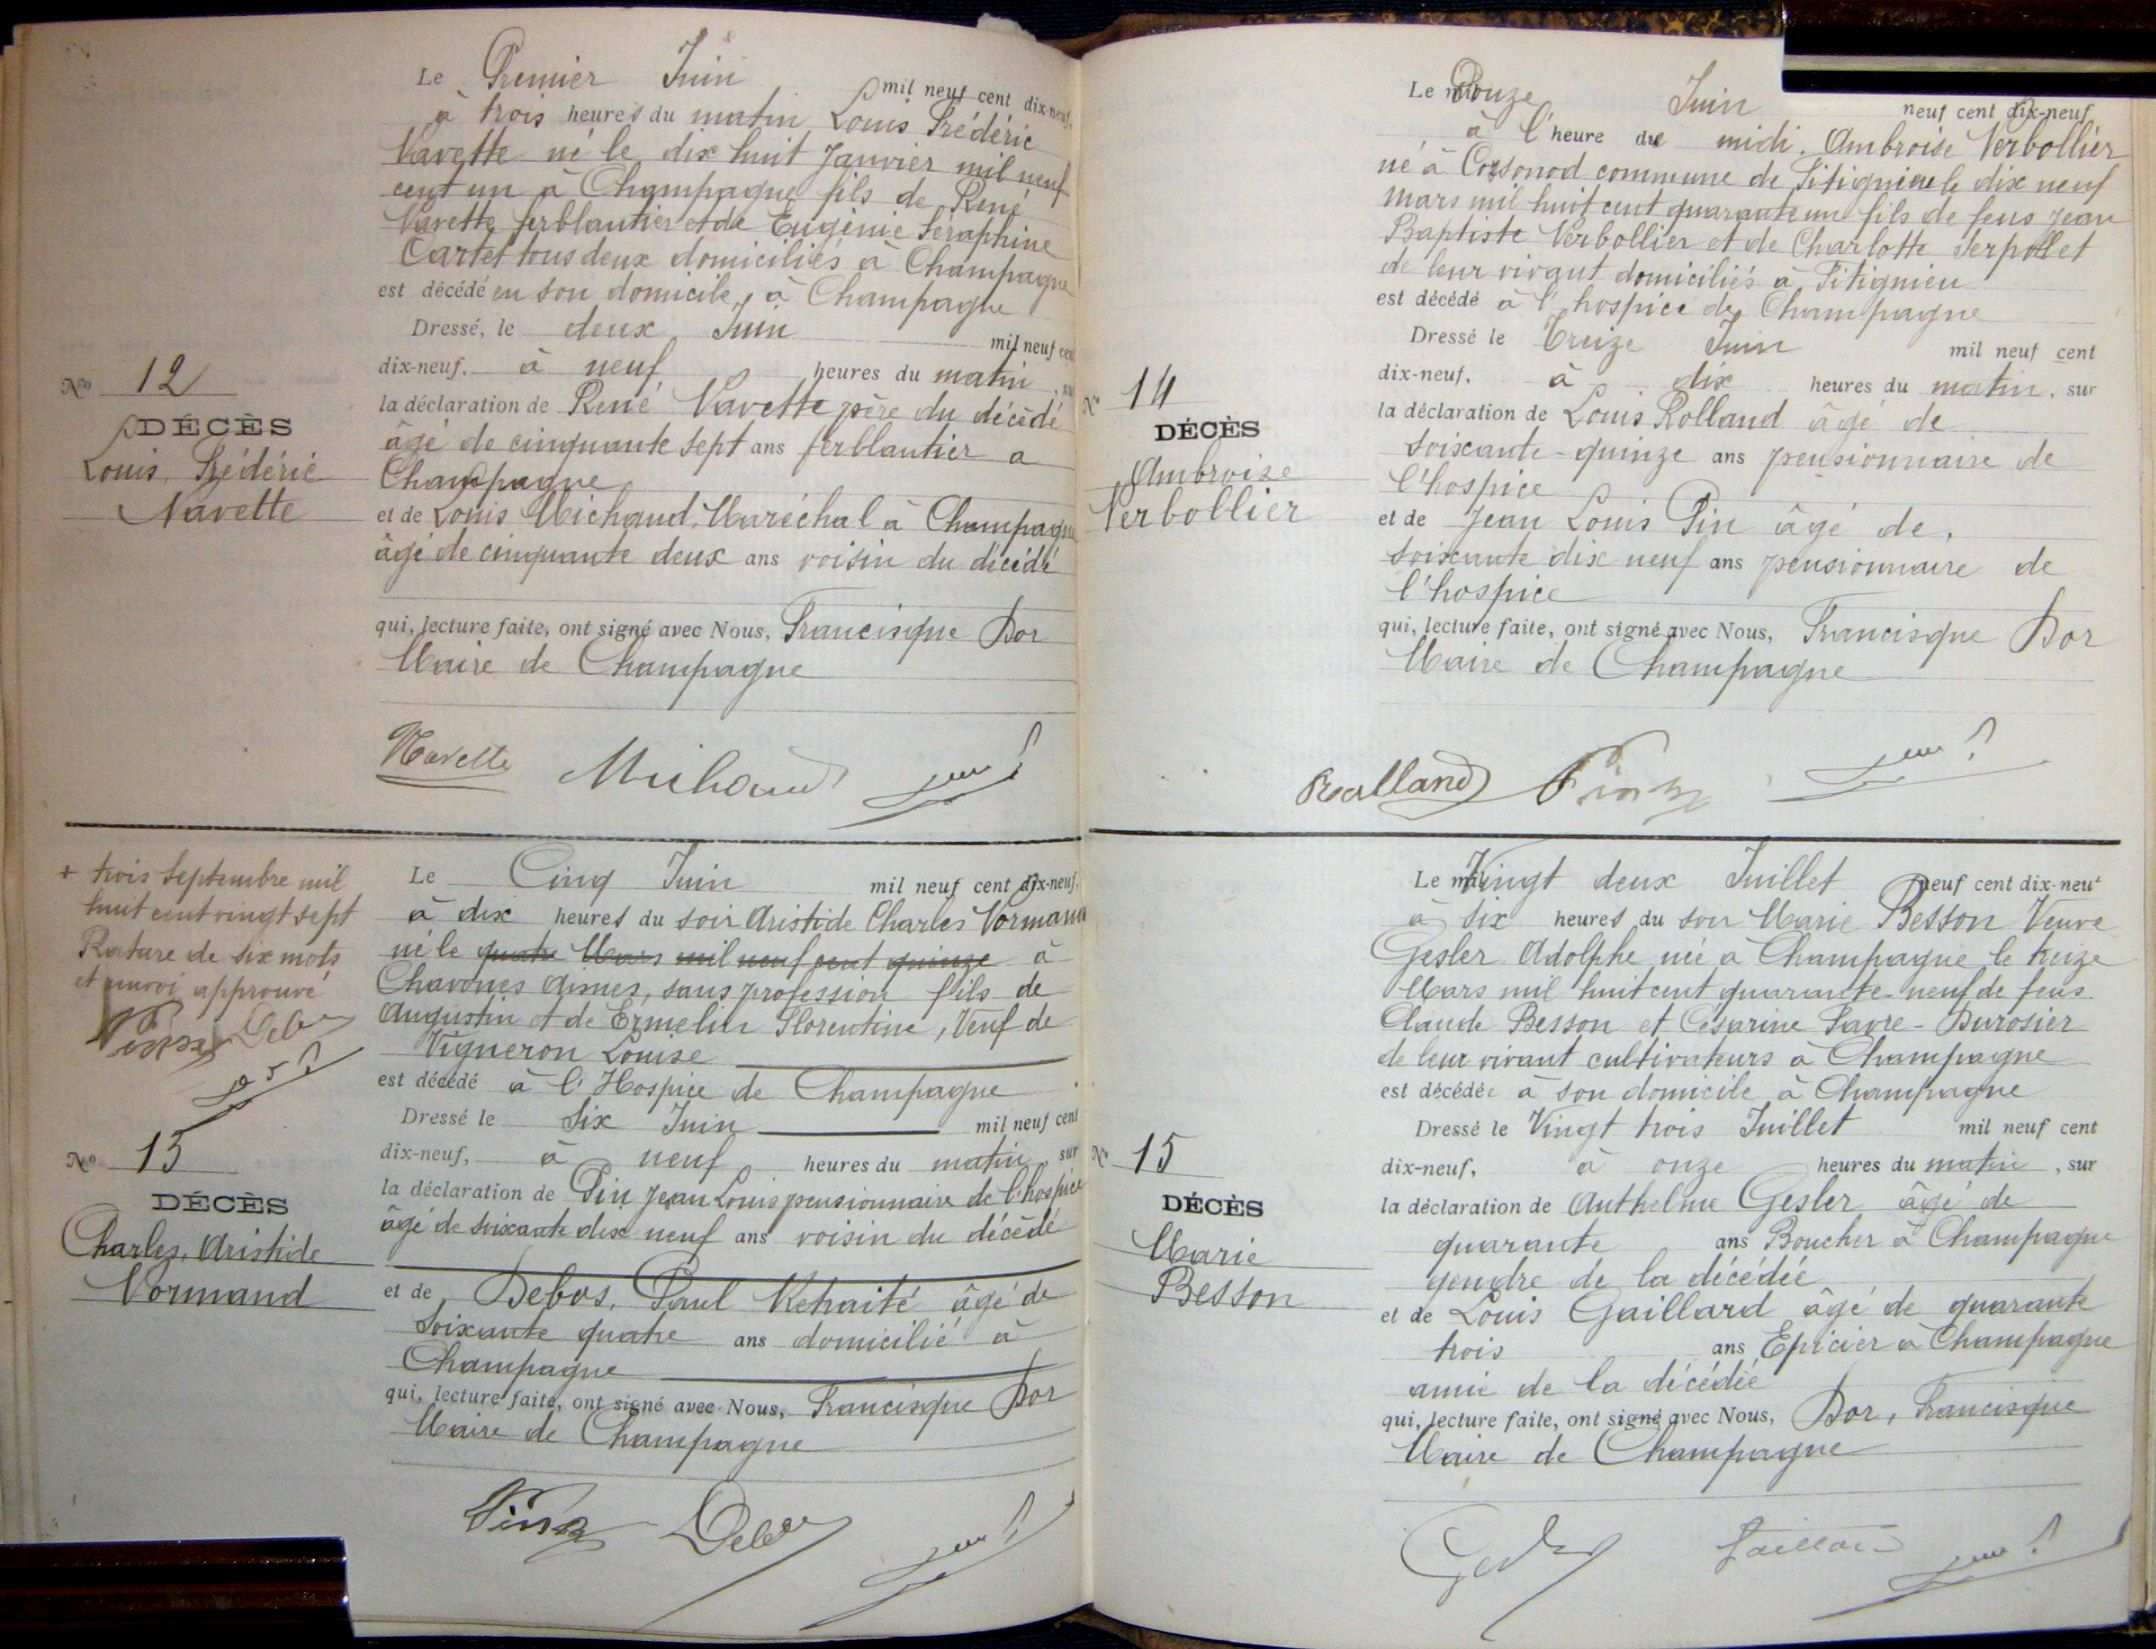 Le Premier Juin mil neuf cent dix-neuf,
à trois heures du matin Louis Frédéric
Navette né le dix huit Janvier mil neuf
cent un à Champagne fils de René
Navette ferblantier et de Eugénie Séraphine
Cartet tous deux domiciliés à Champagne
est décédé en son domicile, à Champagne
Dressé, le deux Juin mil neuf cent
dix-neuf, à neuf heures du matin, sur
la déclaration de René Navette père du décédé
âgé de cinquante sept ans ferblantier a
Champagne
et de Louis Michaud, Maréchal à Champagne
âgé de cinquante deux ans voisin du décédé
qui, lecture faite, ont signé avec Nous, Francisque Dor
Maire de Champagne
No 12
DÉCÈS
Louis, Frédéric
Navette
Navette Michaud
Le Cinq Juin mil neuf cent dix-neuf,
à dix heures du soir Aristide Charles Normand
né le quatre Mars mil neuf cent quinze à
Chavones Aisnes, sans profession fils de
Augustin et de Ermelin Florentine, Veuf de
Vigneron Louise
est décédé à l'Hospice de Champagne
Dressé le Six Juin mil neuf cent
dix-neuf, à neuf heures du matin, sur
la déclaration de Pin Jean Louis pensionnaire de l'hospice
âgé de soixante dix neuf ans voisin du décédé
et de Debos, Paul Retraité âgé de
soixante quatre ans domicilié à
Champagne
qui, lecture faite, ont signé avec Nous, Francisque Dor
Maire de Champagne
+ trois Septembre mil
huit cent vingt sept
Rature de six mots
et renvoi approuvé
No 13
DÉCÈS
Charles, Aristide
Normand
Le mil Douze Juin neuf cent dix-neuf
à l'heure de midi. Ambroise Verbollier
né à Corsonod commune de Sitignieu le dix neuf
Mars mil huit cent quarante un fils de feus Jean
Baptiste Verbollier et de Charlotte Serpollet
de leur vivant domiciliés à Sitignieu
est décédé à l'hospice de Champagne
Dressé le Treize Juin mil neuf cent
dix-neuf, à dix heures du matin, sur
la déclaration de Louis Rolland âgé de
soixante-quinze ans pensionnaire de
l'hospice
et de Jean Louis Pin âgé de,
soixante dix neuf ans pensionnaire de
l'hospice
qui, lecture faite, ont signé avec Nous, Francisque Dor
Maire de Champagne
No 14
DÉCÈS
Ambroise
Verbollier
Rolland
Le mil Vingt deux Juillet neuf cent dix-neuf
à six heures du soir Marie Besson Veuve
Gesler Adolphe née à Champagne le treize
Mars mil huit cent quarante-neuf de feus
Claude Besson et Césarine Favre-Durosier
de leur vivant cultivateurs à Champagne
est décédée à son domicile à Champagne
Dressé le Vingt trois Juillet mil neuf cent
dix-neuf, à onze heures du matin, sur
la déclaration de Anthelme Gesler âgé de
quarante ans Boucher à Champagne
gendre de la décédée
et de Louis Gaillard âgé de quarante
trois ans Epicier à Champagne
amie de la décédée
qui, lecture faite, ont signé avec Nous, Dor, Francisque
Maire de Champagne
No 15
DÉCÈS
Marie
Besson
Gaillard